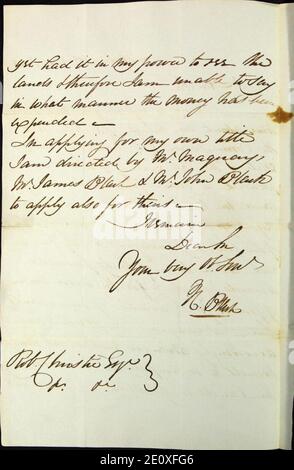 yet had it in my power to see the
lands & therefore I am unable to say
in what manner the money has been
expended –
In applying for my own title
I am directed by Mr.
Mr. James Black & Mr. John Black
to apply also for theirs –
I remain
Dear Sir
Your very Obt Servt
Black
Robt Christie Esqr
&c. &c.
alamy
Image ID: 2E0XFG6
www.alamy.com